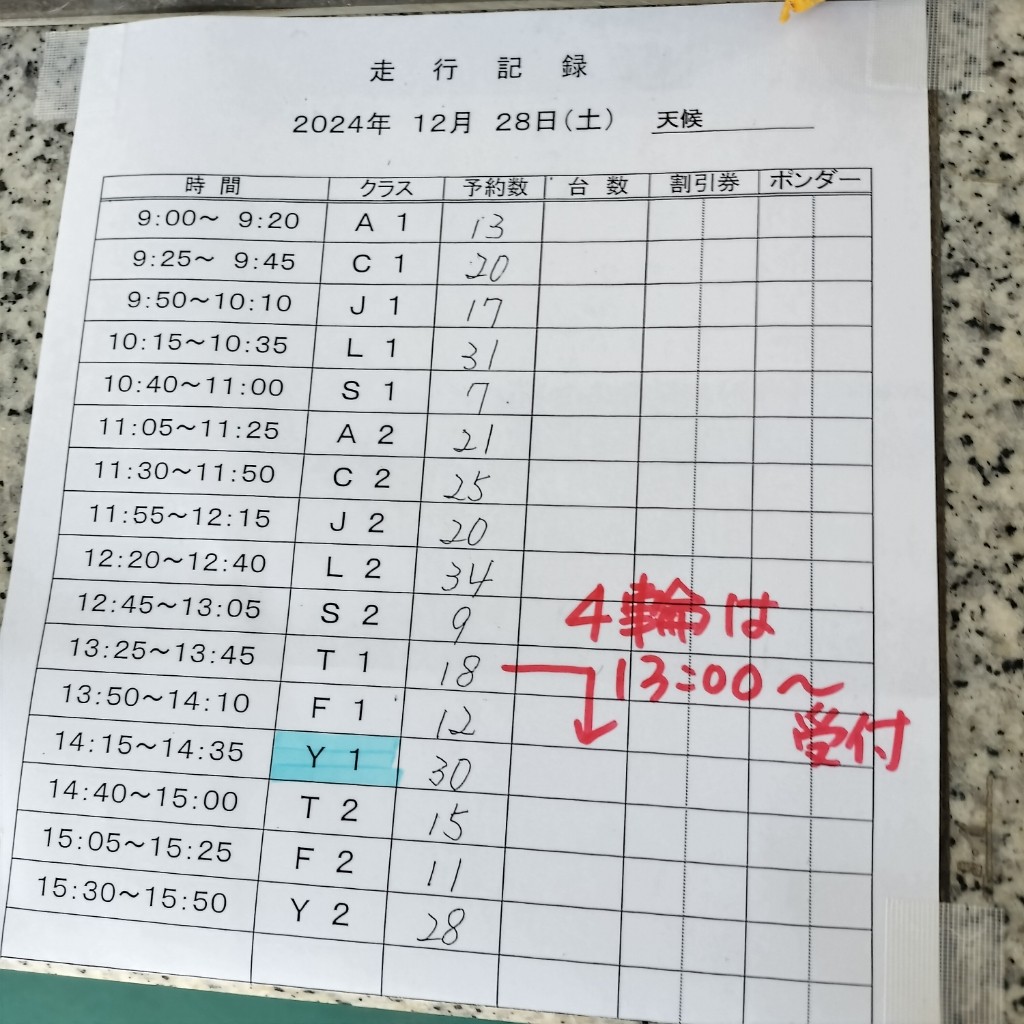 走行記録
2024年 12月 28日(土) 天候
時間 クラス 予約数 台数 割引券 ボンダー
9:00～ 9:20 A 1 13
9:25～ 9:45 C 1 20
9:50～10:10 J 1 17
10:15～10:35 L 1 31
10:40～11:00 S 1 7
11:05～11:25 A 2 21
11:30～11:50 C 2 25
11:55～12:15 J 2 20
12:20～12:40 L 2 34
12:45～13:05 S 2 9
4輪は
13:25～13:45 T 1 18
13:00～
13:50～14:10 F 1 12
受付
14:15～14:35 Y 1 30
14:40～15:00 T 2 15
15:05～15:25 F 2 11
15:30～15:50 Y 2 28